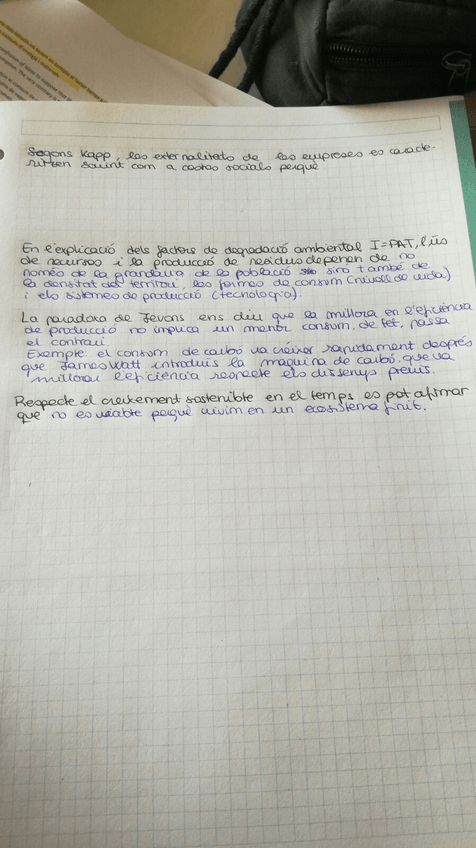 Segons Kapp, les externalitats de les empreses es caracte-
ritzen sovint com a costos socials perquè
En l'explicació dels factors de degradació ambiental I=PAT, l'ús
de recursos i la producció de residus depenen de no
només de la grandària de la població sino també de
la densitat del territori, les formes de consum (nivell de vida)
i els sistemes de producció (tecnologia).
La paradoxa de Jevons ens diu que la millora en l'eficiència
de producció no implica un menor consum, de fet, passa
el contrari.
Exemple: el consum de carbó va créixer rapidament després
que James Watt introduís la màquina de carbó, que va
millorar l'eficiència respecte els dissenys previs.
Respecte el creixement sostenible en el temps es pot afirmar
que no es viable perquè vivim en un ecosistema finit.